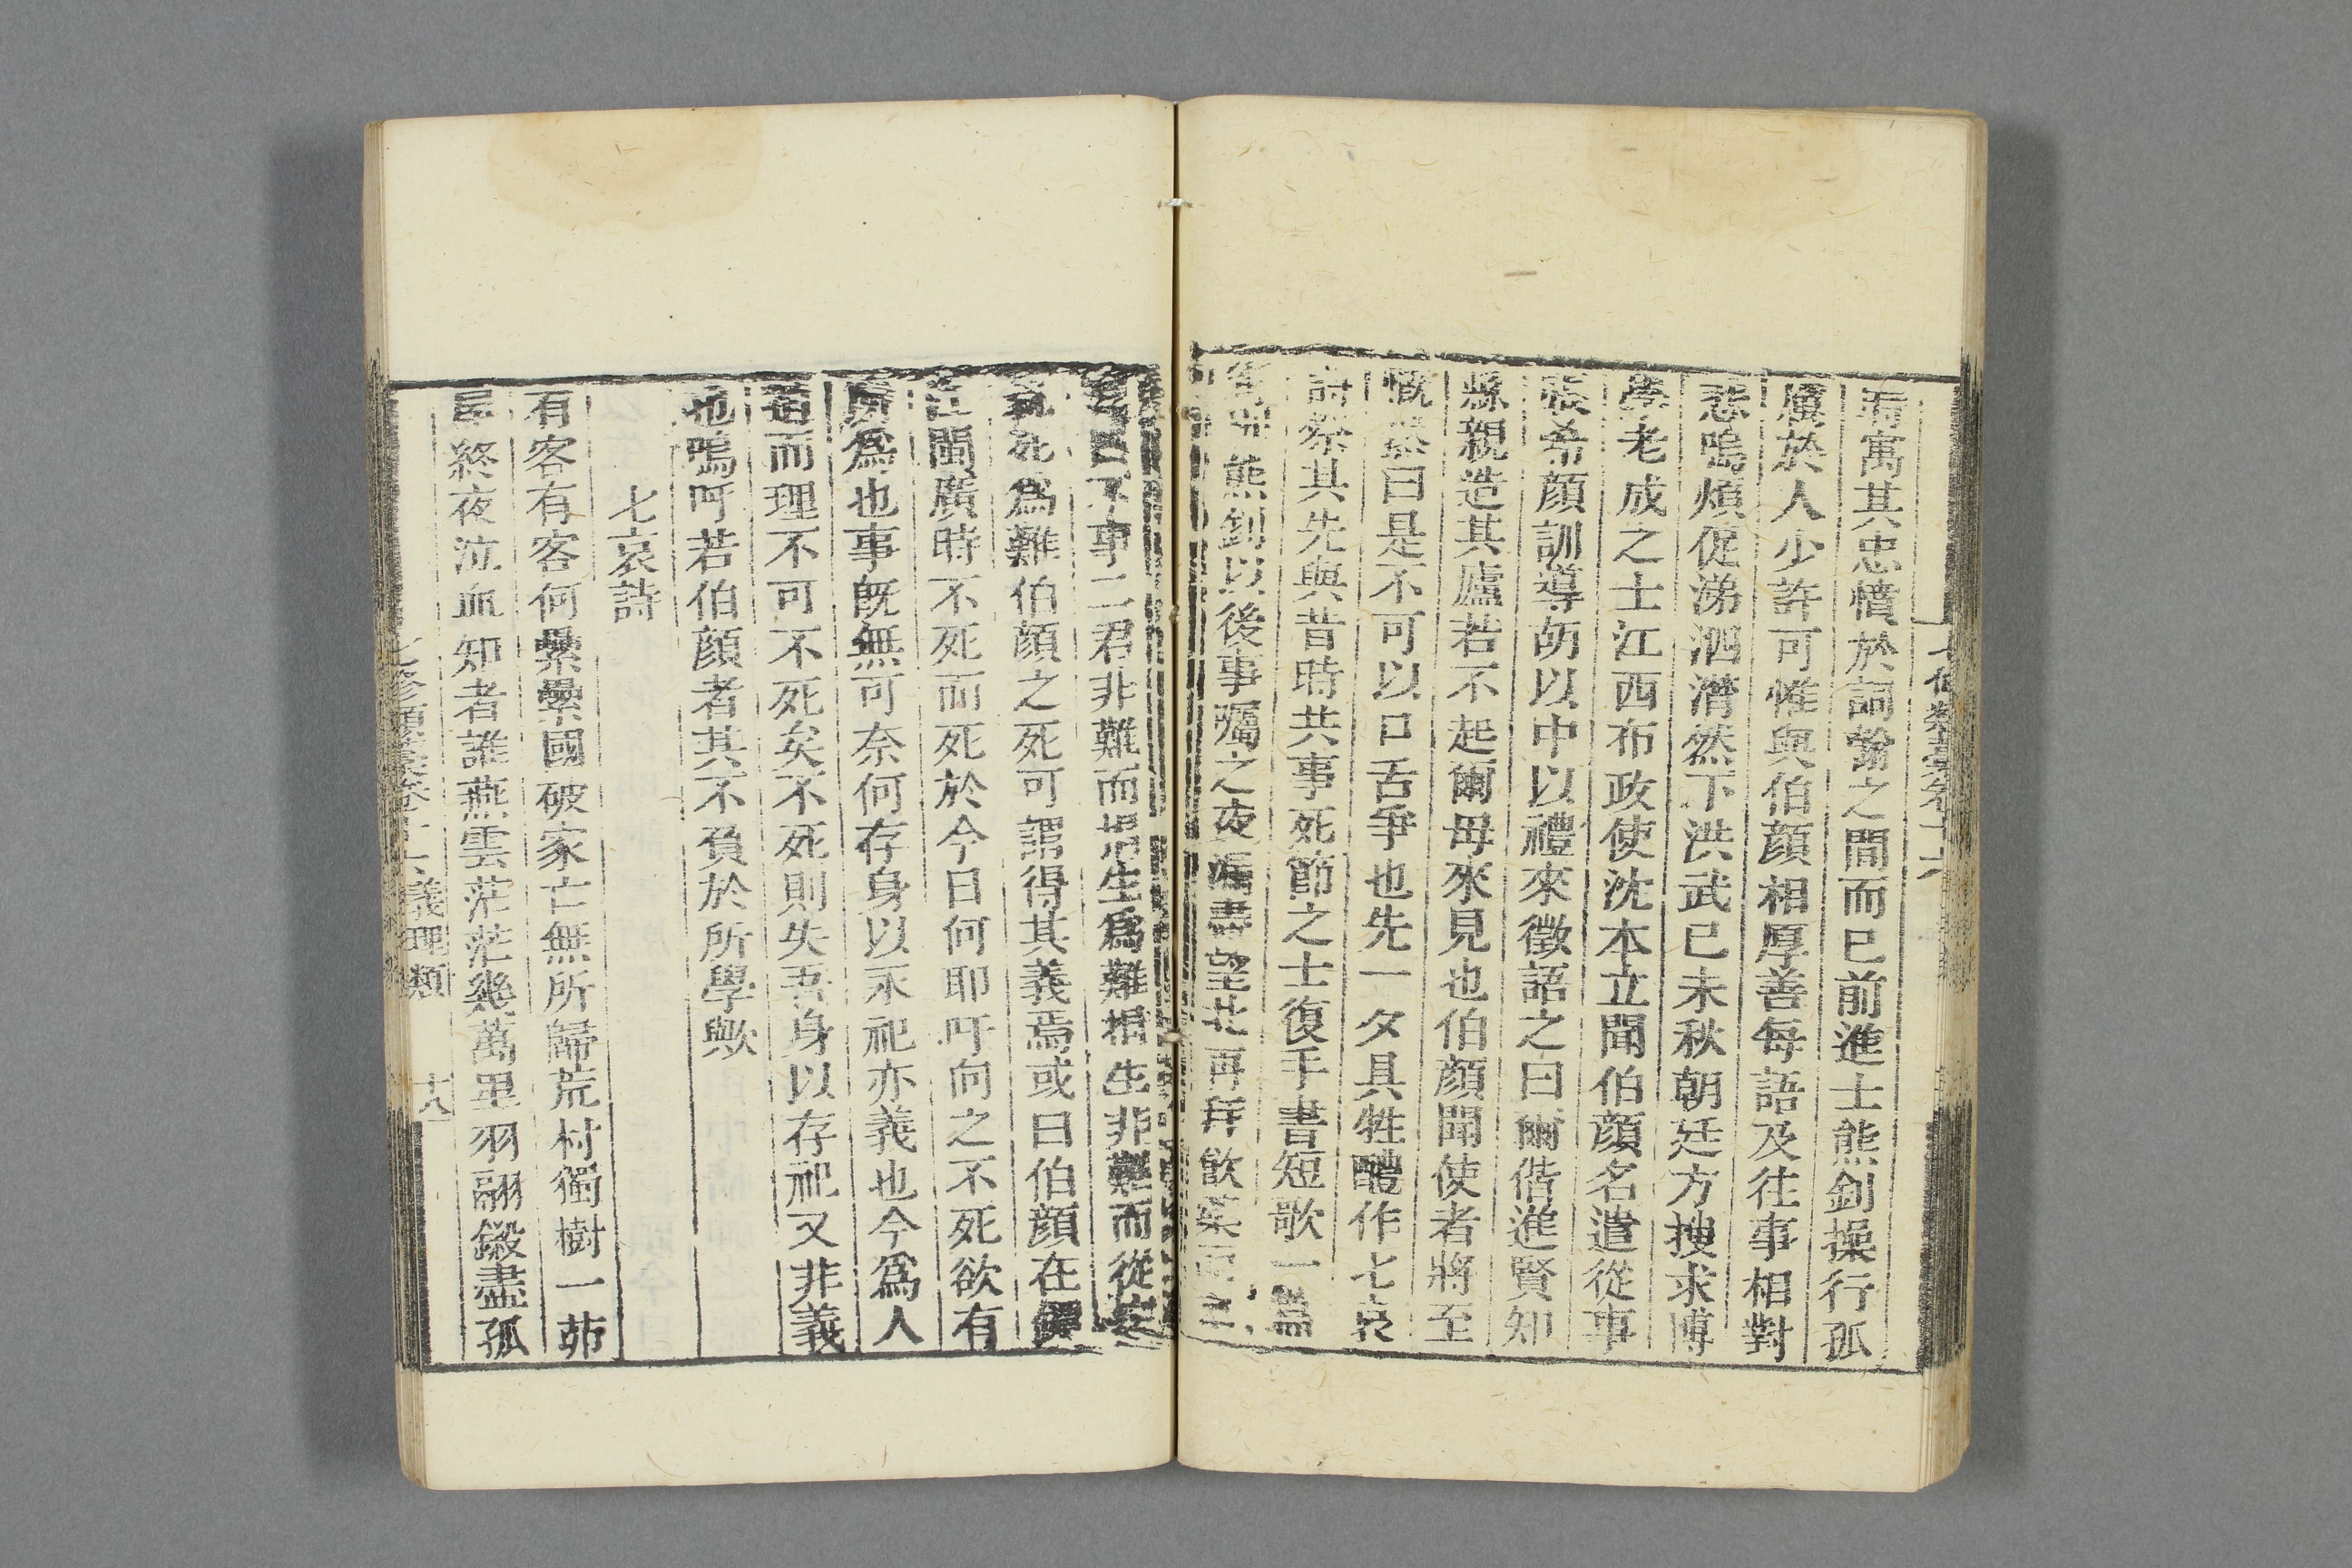 七修類藁卷十六
寓其忠憤於詞翰之間而巳前進士熊釗操行孤
厲於人少許可惟與伯顏相厚善每語及往事相對
悲嗚煩促涕泗潸然下洪武己未秋朝廷方搜求博
學老成之士江西布政使沈本立聞伯顏名遣從事
張希顏訓導劭以中以禮來徵語之曰爾偕進賢知
縣親造其廬若不起爾毋來見也伯顏聞使者將至
慨然曰是不可以口舌爭也先一夕具牲醴作七哀
詩祭其先與昔時共事死節之士復手書短歌一爲
熊釗以後事囑之夜漏盡望北再拜飲藥而
事二君非難而捐生爲難捐生非難而從
死爲難伯顏之死可謂得其義焉或曰伯顏在
江閩廣時不死而死於今日何耶吁向之不死欲有
所爲也事旣無可奈何存身以永祀亦義也今爲人
迫而理不可不死矣不死則失吾身以存祀又非義
也嗚呼若伯顏者其不負於所學歟
七哀詩
有客有客何纍纍國破家亡無所歸荒村獨樹一茆
終夜泣血知者誰燕雲茫茫幾萬里羽翮鎩盡孤
七修類藁卷十六義理類
十八